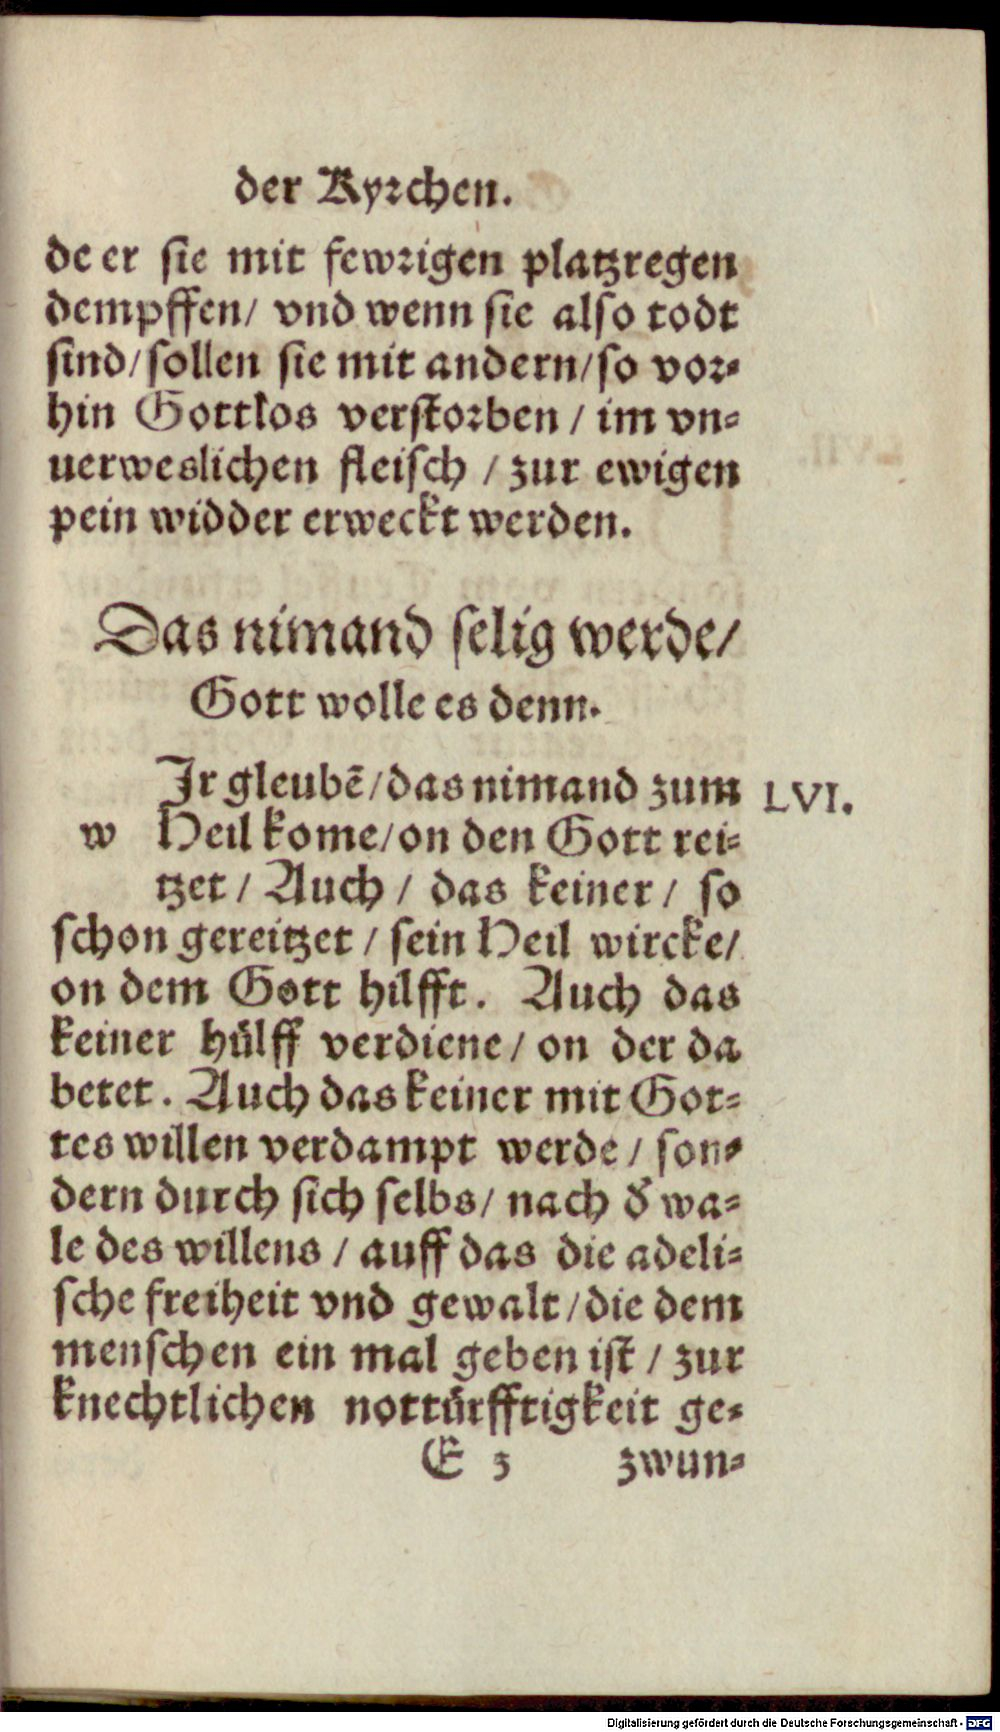 der Kyrchen.
de er sie mit fewrigen platzregen
dempffen/ vnd wenn sie also todt
sind/sollen sie mit andern/so vor-
hin Gottlos verstorben / im vn-
uerweslichen fleisch / zur ewigen
pein widder erweckt werden.
Das nimand selig werde/
Gott wolle es denn.
Jr gleubẽ/das nimand zum LVI.
w Heil kome/on den Gott rei-
tzet / Auch / das keiner / so
schon gereitzet / sein Heil wircke/
on dem Gott hilfft. Auch das
keiner hülff verdiene / on der da
betet. Auch das keiner mit Got-
tes willen verdampt werde / son-
dern durch sich selbs/ nach d᷑ wa-
le des willens / auff das die adeli-
sche freiheit vnd gewalt/die dem
menschen ein mal geben ist / zur
knechtlichen nottürfftigkeit ge-
E 3 zwun-
Digitalisierung gefördert durch die Deutsche Forschungsgemeinschaft - DFG